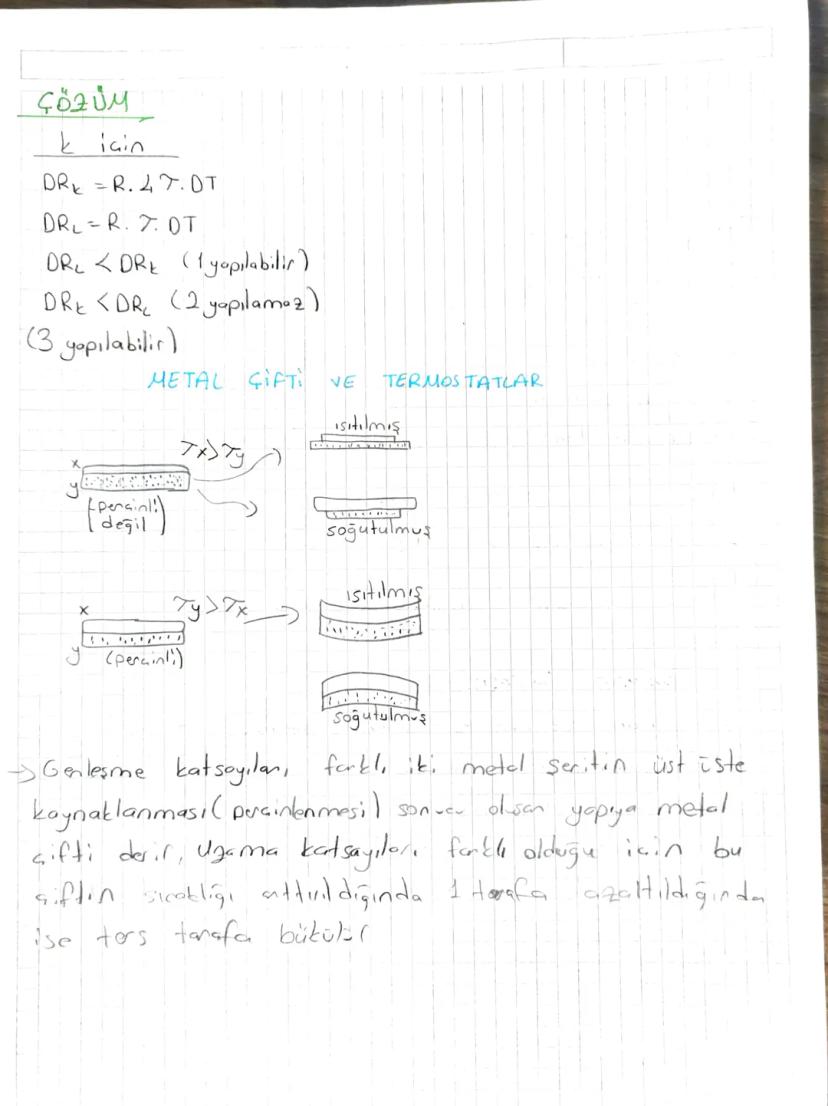 ÇÖZÜM
k için
DRk = R. 4 T. DT
DRL = R. T. DT
DRL < DRk (1 yapılabilir)
DRk < DRL (2 yapılamaz)
(3 yapılabilir)
METAL ÇİFTİ VE TERMOSTATLAR
ısıtılmış
Tx > Ty
x
y
(perçinli değil)
soğutulmuş
ısıtılmış
x
Ty > Tx
y
(perçinli)
soğutulmuş
→ Genleşme katsayıları, farklı, iki metal şeritin üst üste
kaynaklanması (perçinlenmesi) sonucu oluşan yapıya metal
çifti denir, Uzama katsayıları farklı olduğu için bu
çiftin sıcaklığı arttırıldığında 1 tarafa azaltıldığında
ise ters tarafa bükülür